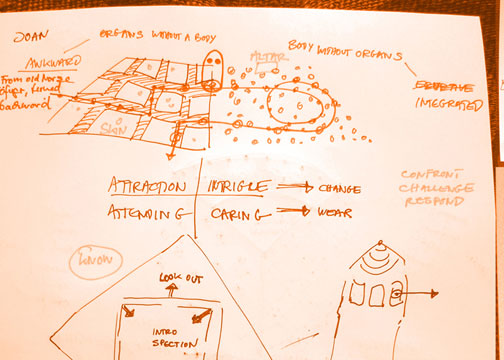 JOAN
ORGANS WITHOUT A BODY
AWKWARD
From old Norse
afugr, turned
backward
ALTAR
BODY WITHOUT ORGANS
INTEGRATED
SKIN
ATTRACTION INTRIGUE → CHANGE
ATTENDING CARING → WEAR
CONFRONT
CHALLENGE
RESPOND
KNOW
LOOK OUT
INTRO
SPECTION